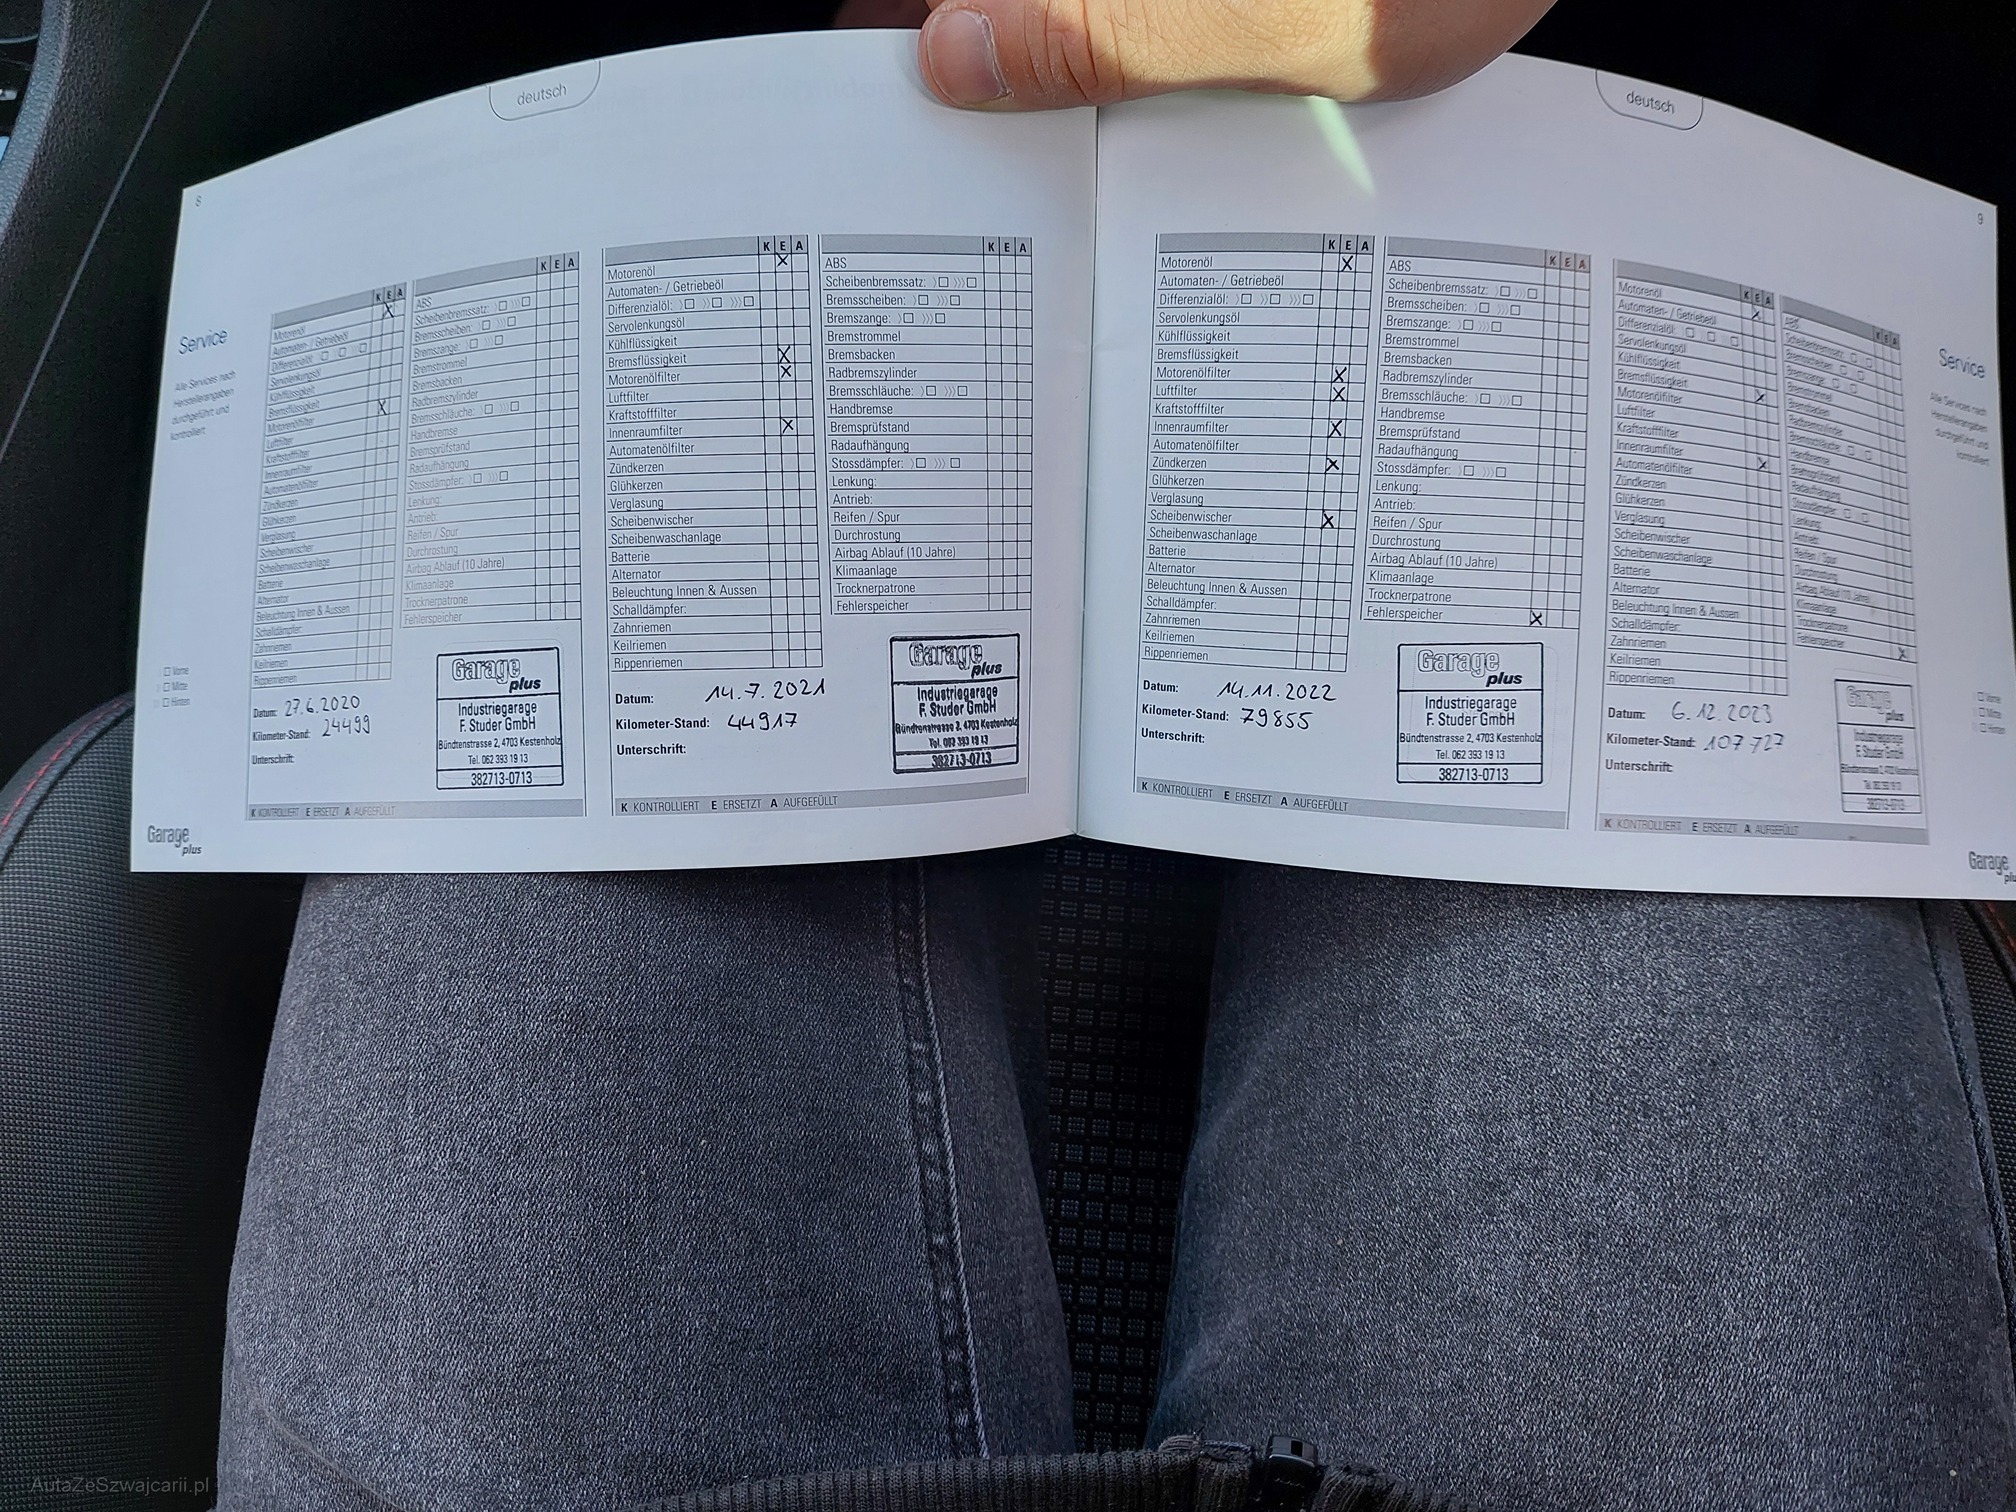 deutsch
8
Service
Alle Services nach
Herstellerangaben
durchgeführt und
kontrolliert
K E A
Motorenöl X
Automaten- / Getriebeöl
Differenzialöl:
Servolenkungsöl
Kühlflüssigkeit
Bremsflüssigkeit
Motorenölfilter X
Luftfilter
Kraftstofffilter
Innenraumfilter
Automatenölfilter
Zündkerzen
Glühkerzen
Verglasung
Scheibenwischer
Scheibenwaschanlage
Batterie
Alternator
Beleuchtung Innen & Aussen
Schalldämpfer:
Zahnriemen
Keilriemen
Rippenriemen
K E A
ABS
Scheibenbremssatz: 〉☐ 〉〉〉☐
Bremsscheiben: 〉☐ 〉〉〉☐
Bremszange: 〉☐ 〉〉〉☐
Bremstrommel
Bremsbacken
Radbremszylinder
Bremsschläuche: 〉☐ 〉〉〉☐
Handbremse
Bremsprüfstand
Radaufhängung
Stossdämpfer: 〉☐ 〉〉〉☐
Lenkung:
Antrieb:
Reifen / Spur
Durchrostung
Airbag Ablauf (10 Jahre)
Klimaanlage
Trocknerpatrone
Fehlerspeicher
☐ Vorne
☐ Mitte
☐ Hinten
Datum: 27.6.2020
Kilometer-Stand: 24499
Unterschrift:
Garage
plus
Industriegarage
F. Studer GmbH
Bündtenstrasse 2, 4703 Kestenholz
Tel. 062 393 19 13
382713-0713
K KONTROLLIERT E ERSETZT A AUFGEFÜLLT
K E A
Motorenöl X
Automaten- / Getriebeöl
Differenzialöl: 〉☐ 〉〉☐ 〉〉〉☐
Servolenkungsöl
Kühlflüssigkeit
Bremsflüssigkeit X
Motorenölfilter X
Luftfilter
Kraftstofffilter
Innenraumfilter X
Automatenölfilter
Zündkerzen
Glühkerzen
Verglasung
Scheibenwischer
Scheibenwaschanlage
Batterie
Alternator
Beleuchtung Innen & Aussen
Schalldämpfer:
Zahnriemen
Keilriemen
Rippenriemen
K E A
ABS
Scheibenbremssatz: 〉☐ 〉〉〉☐
Bremsscheiben: 〉☐ 〉〉〉☐
Bremszange: 〉☐ 〉〉〉☐
Bremstrommel
Bremsbacken
Radbremszylinder
Bremsschläuche: 〉☐ 〉〉〉☐
Handbremse
Bremsprüfstand
Radaufhängung
Stossdämpfer: 〉☐ 〉〉〉☐
Lenkung:
Antrieb:
Reifen / Spur
Durchrostung
Airbag Ablauf (10 Jahre)
Klimaanlage
Trocknerpatrone
Fehlerspeicher
Datum: 14.7.2021
Kilometer-Stand: 44917
Unterschrift:
Garage
plus
Industriegarage
F. Studer GmbH
Bündtenstrasse 2, 4703 Kestenholz
Tel. 062 393 19 13
382713-0713
K KONTROLLIERT E ERSETZT A AUFGEFÜLLT
Garage
plus
deutsch
9
K E A
Motorenöl X
Automaten- / Getriebeöl
Differenzialöl: 〉☐ 〉〉☐ 〉〉〉☐
Servolenkungsöl
Kühlflüssigkeit
Bremsflüssigkeit
Motorenölfilter X
Luftfilter X
Kraftstofffilter
Innenraumfilter X
Automatenölfilter
Zündkerzen X
Glühkerzen
Verglasung
Scheibenwischer X
Scheibenwaschanlage
Batterie
Alternator
Beleuchtung Innen & Aussen
Schalldämpfer:
Zahnriemen
Keilriemen
Rippenriemen
K E A
ABS
Scheibenbremssatz: 〉☐ 〉〉〉☐
Bremsscheiben: 〉☐ 〉〉〉☐
Bremszange: 〉☐ 〉〉〉☐
Bremstrommel
Bremsbacken
Radbremszylinder
Bremsschläuche: 〉☐ 〉〉〉☐
Handbremse
Bremsprüfstand
Radaufhängung
Stossdämpfer: 〉☐ 〉〉〉☐
Lenkung:
Antrieb:
Reifen / Spur
Durchrostung
Airbag Ablauf (10 Jahre)
Klimaanlage
Trocknerpatrone
Fehlerspeicher X
Datum: 14.11.2022
Kilometer-Stand: 79855
Unterschrift:
Garage
plus
Industriegarage
F. Studer GmbH
Bündtenstrasse 2, 4703 Kestenholz
Tel. 062 393 19 13
382713-0713
K KONTROLLIERT E ERSETZT A AUFGEFÜLLT
K E A
Motorenöl X
Automaten- / Getriebeöl
Differenzialöl:
Servolenkungsöl
Kühlflüssigkeit
Bremsflüssigkeit
Motorenölfilter X
Luftfilter
Kraftstofffilter
Innenraumfilter X
Automatenölfilter
Zündkerzen
Glühkerzen
Verglasung
Scheibenwischer
Scheibenwaschanlage
Batterie
Alternator
Beleuchtung Innen & Aussen
Schalldämpfer:
Zahnriemen
Keilriemen
Rippenriemen
K E A
ABS
Scheibenbremssatz:
Bremsscheiben:
Bremszange:
Bremstrommel
Bremsbacken
Radbremszylinder
Bremsschläuche:
Handbremse
Bremsprüfstand
Radaufhängung
Stossdämpfer:
Lenkung:
Antrieb:
Reifen / Spur
Durchrostung
Airbag Ablauf (10 Jahre)
Klimaanlage
Trocknerpatrone
Fehlerspeicher X
Service
Alle Services nach
Herstellerangaben
durchgeführt und
kontrolliert
☐ Vorne
☐ Mitte
☐ Hinten
Datum: 6.12.2023
Kilometer-Stand: 107727
Unterschrift:
Garage
plus
Industriegarage
F. Studer GmbH
Bündtenstrasse 2, 4703 Kestenholz
Tel. 062 393 19 13
382713-0713
K KONTROLLIERT E ERSETZT A AUFGEFÜLLT
Garage
plus
AutaZeSzwajcarii.pl